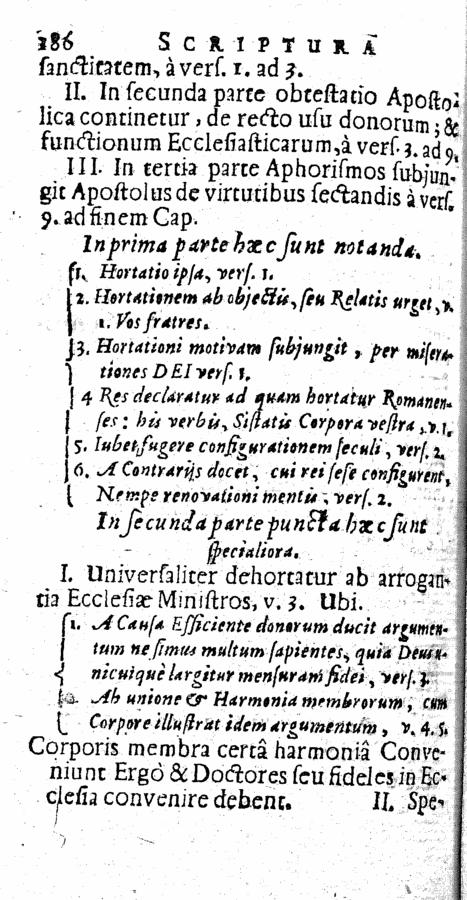 286 SCRIPTURÆ
ſanctitatem, à verſ. 1. ad 3.
II. In ſecunda parte obteſtatio Apoſto-
lica continetur, de recto uſu donorum; &
functionum Eccleſiaſticarum, à verſ. 3. ad 9.
III. In tertia parte Aphoriſmos ſubjun-
git Apoſtolus de virtutibus ſectandis à verſ.
9. ad finem Cap.
In prima parte hæc ſunt notanda.
1. Hortatio ipſa, verſ. 1.
2. Hortationem ab objectis, ſeu Relatis urget, v.
1. Vos fratres.
3. Hortationi motivam ſubjungit, per miſera-
tiones DEI verſ. 1.
4 Res declaratur ad quam hortatur Romanen-
ſes: his verbis, Siſtatis Corpora veſtra, v. 1.
5. Iubet fugere configurationem ſeculi, verſ. 2.
6. A Contrarijs docet, cui rei ſeſe configurent,
Nempe renovationi mentis, verſ. 2.
In ſecunda parte puncta hæc ſunt
ſpecialiora.
I. Univerſaliter dehortatur ab arrogan-
tia Eccleſiæ Miniſtros, v. 3. Ubi.
1. A Cauſa Efficiente donorum ducit argumen-
tum ne ſimus multum ſapientes, quia Deus u-
nicuiquè largitur menſuram fidei, verſ. 3.
2. Ab unione & Harmonia membrorum, cum
Corpore illuſtrat idem argumentum, v. 4. 5.
Corporis membra certâ harmoniâ Conve-
niunt Ergò & Doctores ſeu fideles in Ec-
cleſia convenire debent. II. Spe-